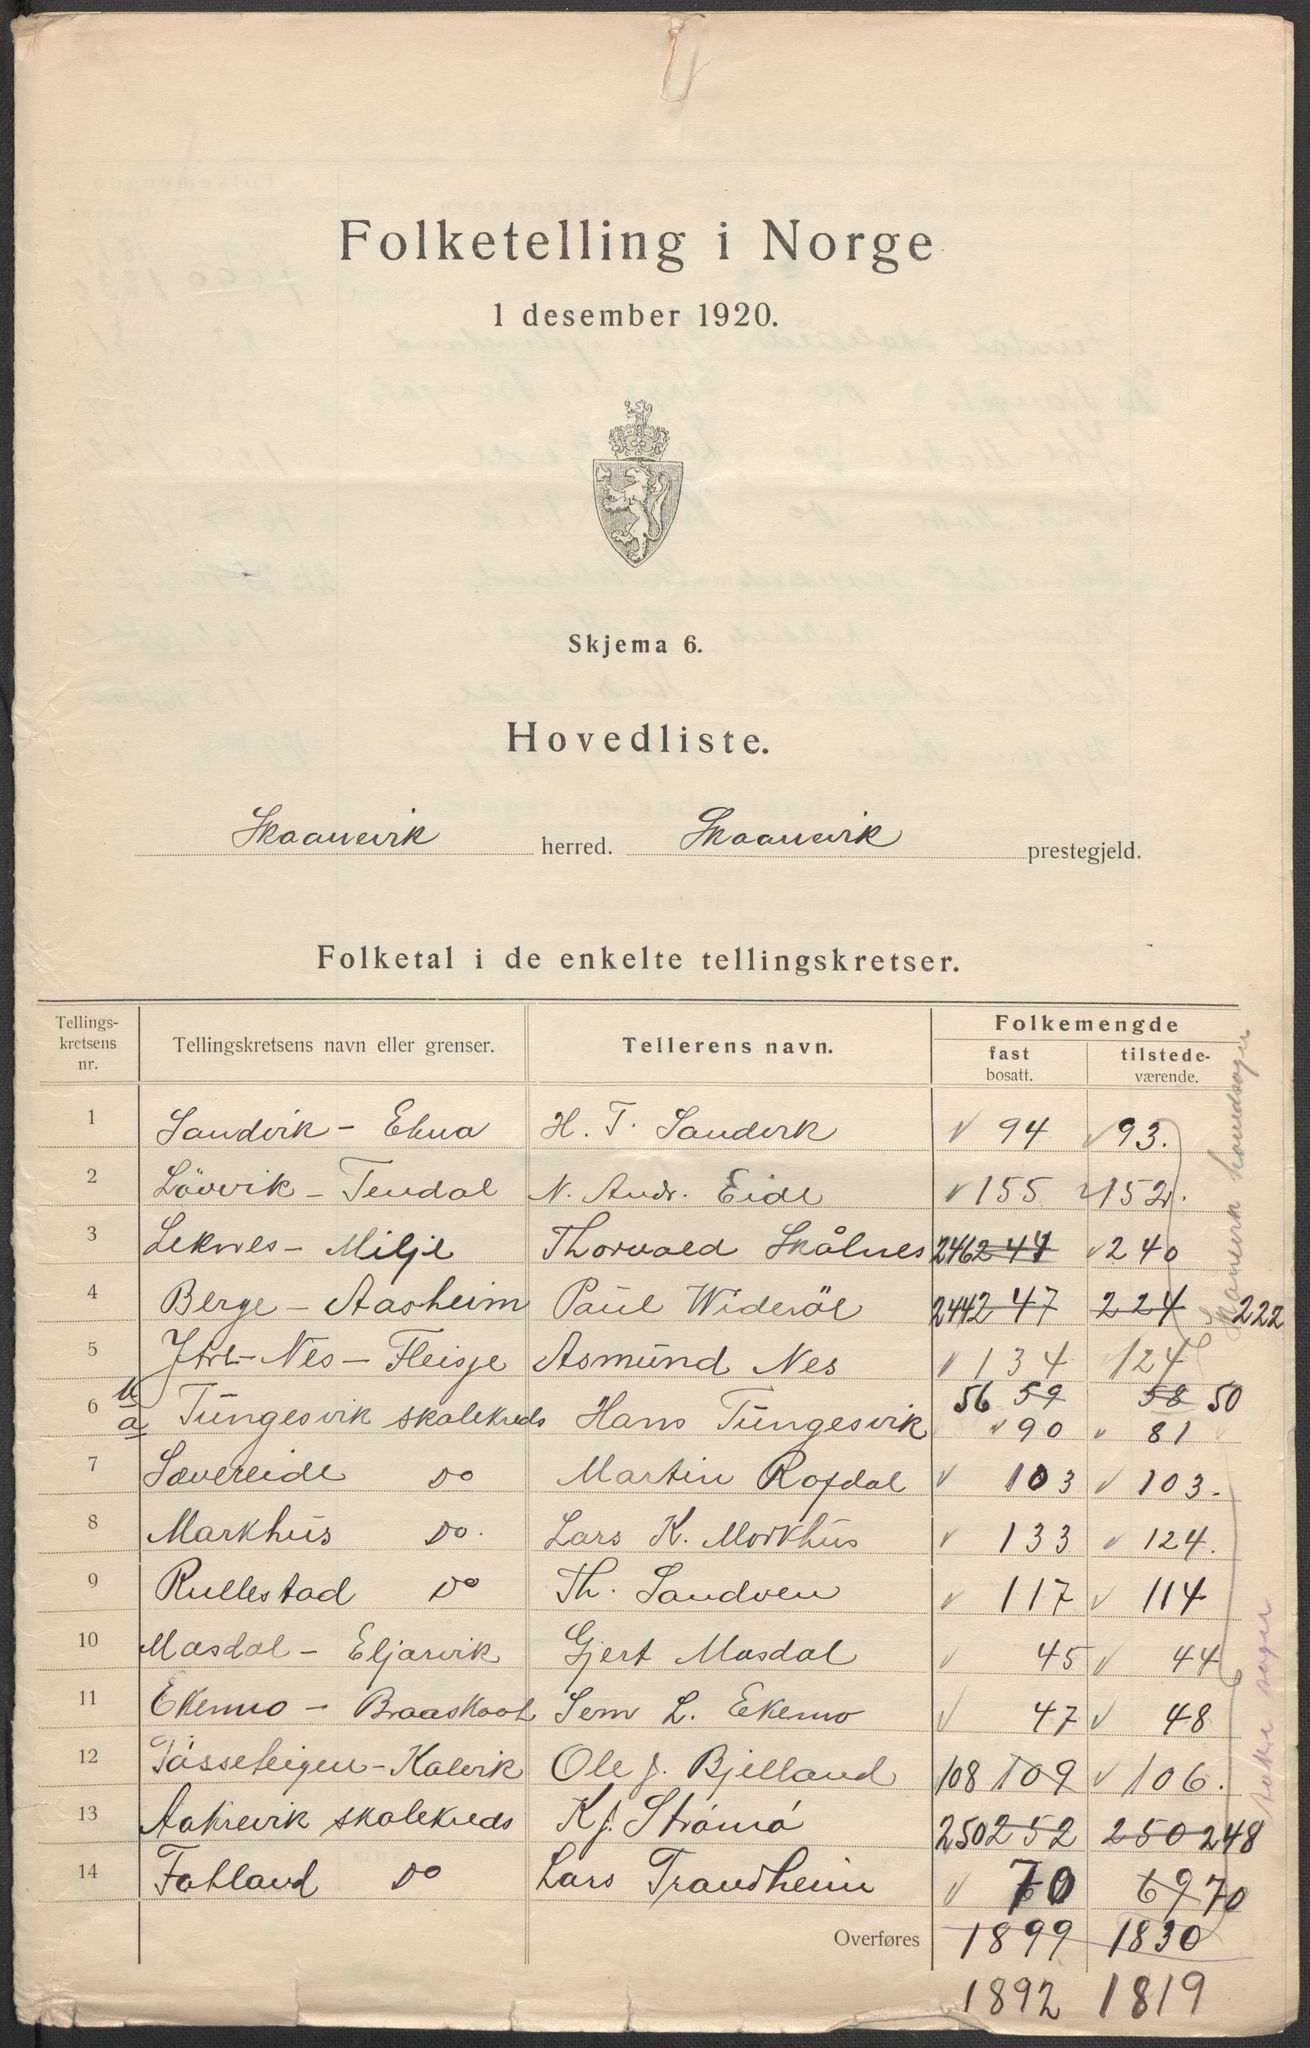 Folketelling i Norge
1 desember 1920.
Skjema 6.
Hovedliste.
Skaanevik herred. Skaanevik prestegjeld.
Folketal i de enkelte tellingskretser.
Tellings-kretsens nr. Tellingskretsens navn eller grenser. Tellerens navn. Folkemengde
fast bosatt. tilstede-værende.
1 Sandvik - Ekna H. T. Sandvik 94 93.
2 Løvvik - Tendal N. Andr. Eide 155 152.
3 Leknes - Milje Thorvald Skålnes 246 247 240
4 Berge - Aasheim Paul Widerøe 244 247 224 222
5 Nes - Fleisje Asmund Nes 134 124
6 b 56 59 58 50
a Tungesvik skolekreds Hans Tungesvik 90 81
7 Sævereide Do Martin Rafdal 103 103.
8 Markhus Do. Lars K. Markhus 133 124.
9 Rullestad Do Th. Sandven 117 114
10 Masdal - Eljarvik Gjert Masdal 45 44
11 Ekemo - Sem L. Ekemo 47 48
12 Tásseteigen - Kalvik Ole J. Bjelland 108 109 106.
13 Aakrevik skolekreds K J. Strømø 250 252 250 248
14 Fatland Do Lars Trandheim 70 69 70
Overføres 1899 1830
1892 1819
Skaanevik hovedsogn